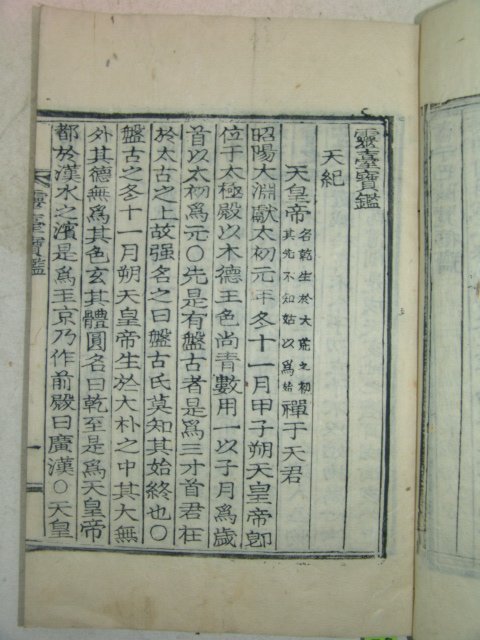 靈臺寶鑑
天紀
天皇帝 名乾生於大荒之初 其先不知始以爲始 禪于天君
昭陽大淵獻太初元年冬十一月甲子朔天皇帝卽
位于太極殿以木德王色尚青數用一以子月爲歲
首以太初爲元〇先是有盤古者是爲三才首君在
於太古之上故强名之曰盤古氏莫知其始終也〇
盤古之冬十一月朔天皇帝生於大朴之中其大無
外其德無爲其色玄其體圓名曰乾至是爲天皇帝
都於漢水之濱是爲玉京乃作前殿曰廣漢〇天皇
靈臺寶鑑
一